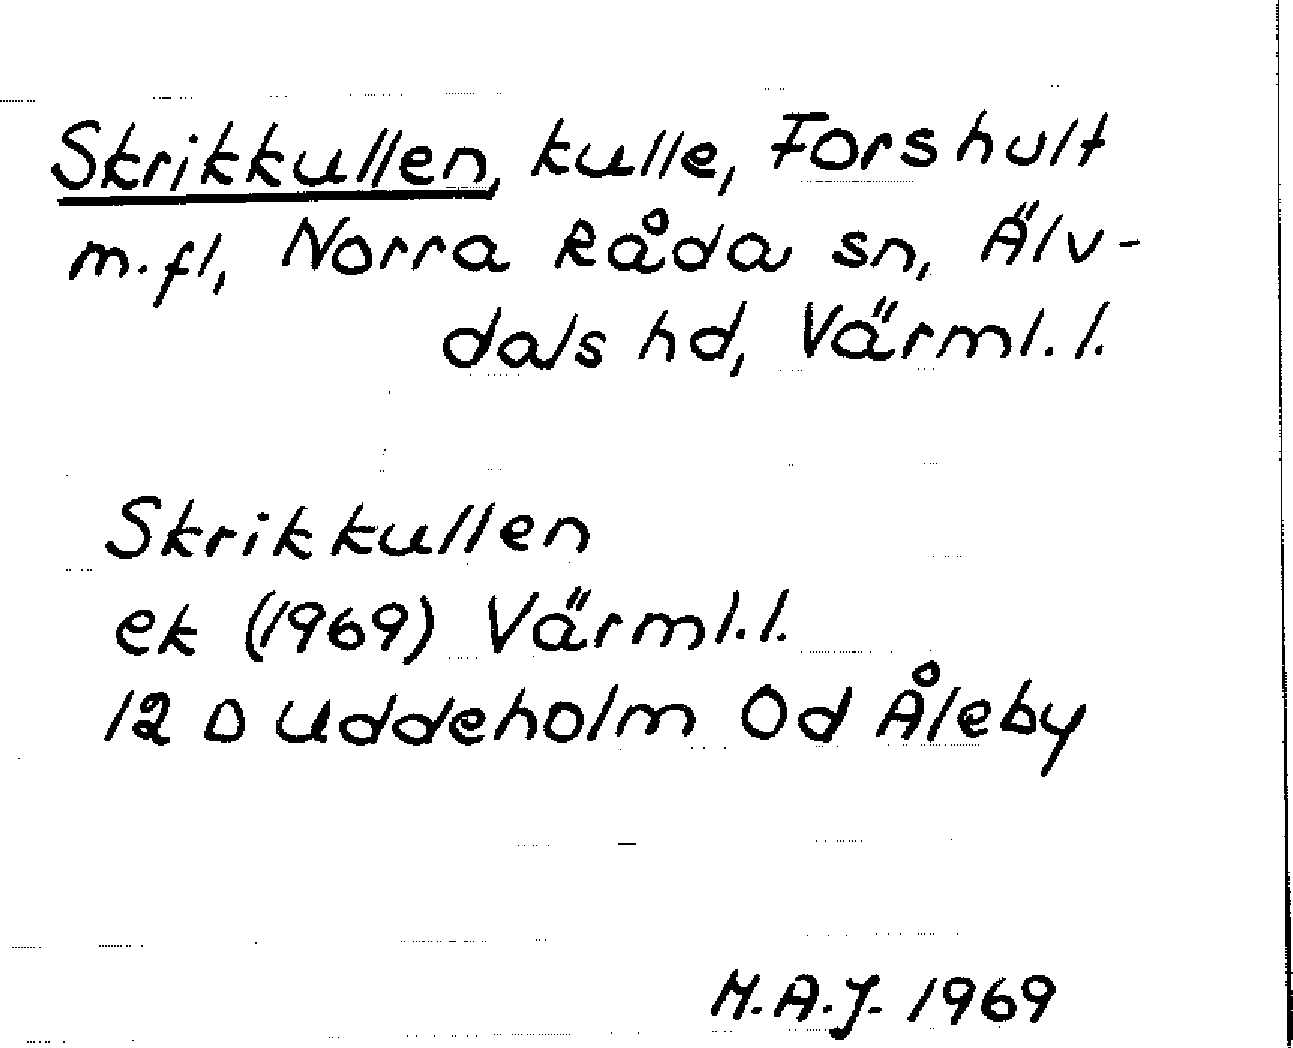 Skrikkullen, kulle, Forshult
m.fl, Norra Råda sn, Älv-
dals hd, Värml.l.
Skrikkullen
ek (1969) Värml.l.
12 D Uddeholm Od Åleby
M.A.J. 1969